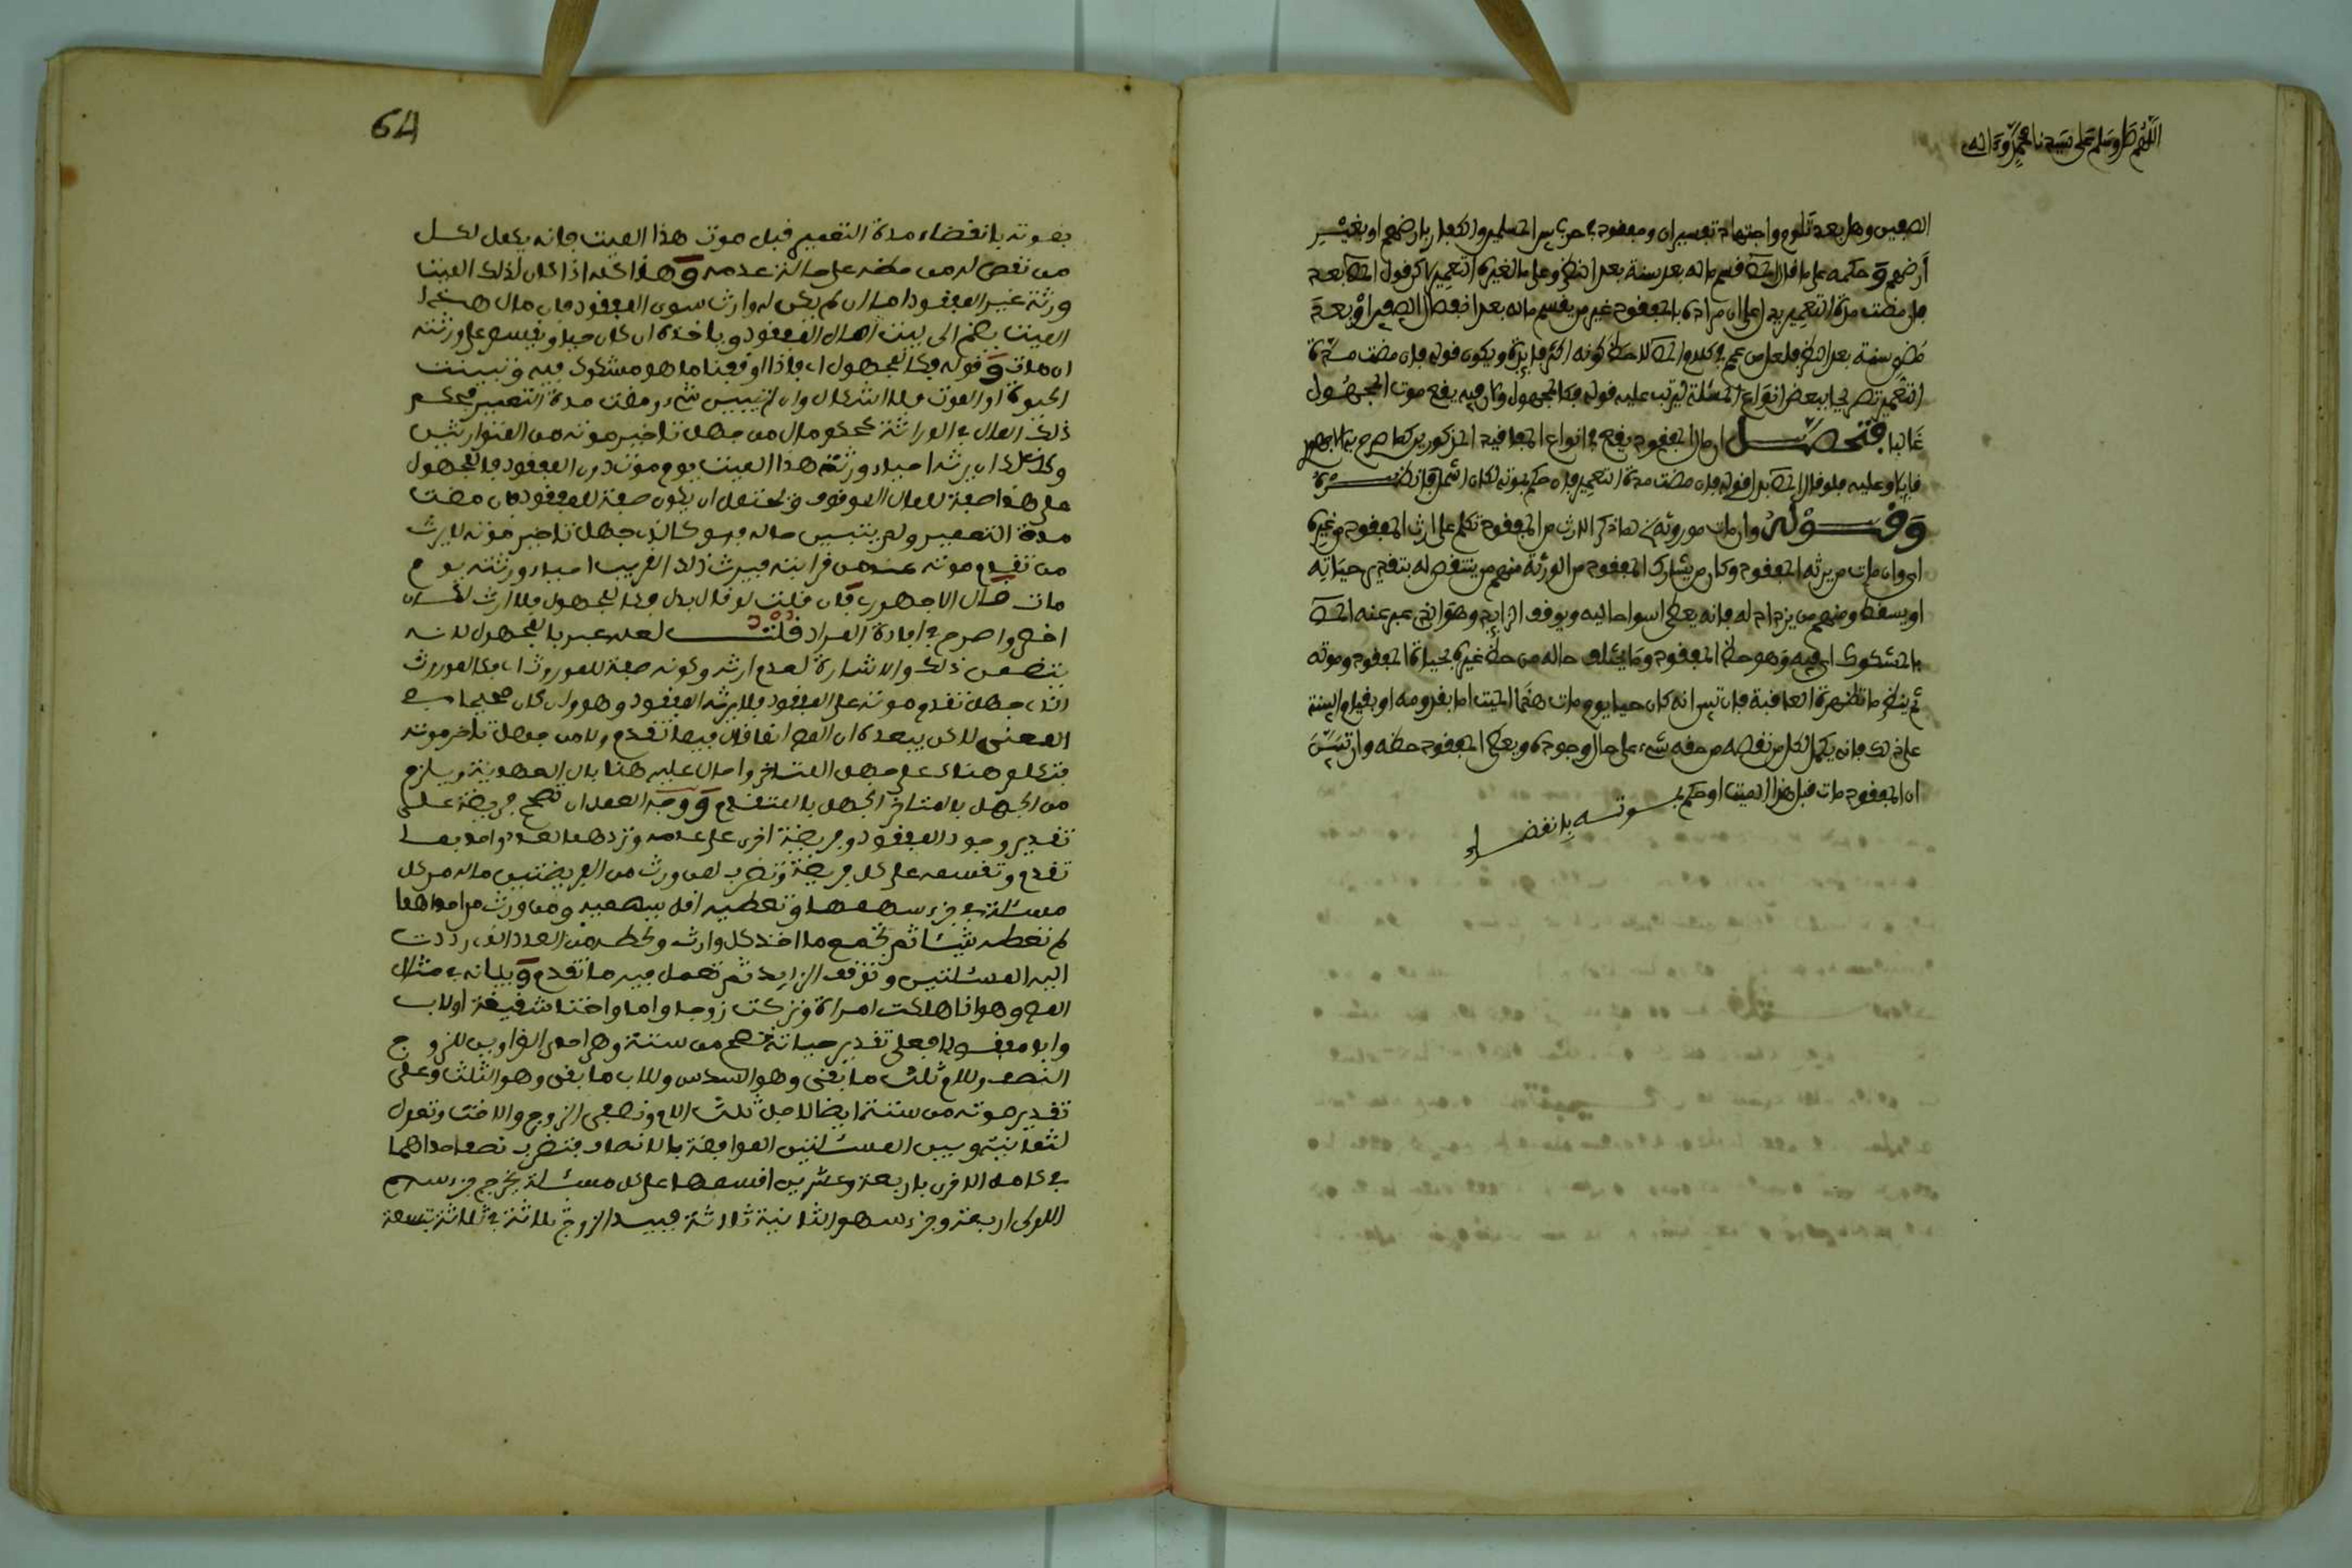 اللهم صل وسلم على سيدنا محمد وءاله
الصفين وهل بعد تلوم واجتهاد تفسيران ومفقود في حرب بين المسلمين والكفار بارضهم او بغير
أرضهم وحكمه على ما قال المص قسم ماله بعد سنة بعد النظر وعلى ما لغيره التعمير لاكن قول المص بعد
فان مضت مدة التعمير يدل على ان مراده بالمفقود غير من يقسم ماله بعد انفصال الصفين او بعد
مضي سنة بعد النظر فلعل من عمم في كلام المص لاحظ كونه اكثر فايدة ويكون قوله فان مضت مدة
التعمير تصريحا ببعض انواع المسئلة ليرتب عليه قوله فكالمجهول وكان فيه يقع موت المجهول
غالبا فتحصل ان مال المفقود يقع في انواع المفاقيد المذكورين كما صرح به الاجهوري
قايلا وعليه فلو قال المص بدل قوله فان مضت مدة التعمير فان حكم بموته لكان اشمل فانظره
وقوله وان مات موروثه لما ذكر الارث من المفقود تكلم على ارث المفقود من غيره
اي وان مات من يرثه المفقود وكان من يشارك المفقود من الورثة منهم من ينتقص له بتقدير حياته
او يسقط ومنهم من يزداد له فانه يعطى اسوا حاليه ويوقف الزايد وهو الذي عبر عنه المص
بالمشكوك اي فيه وهو حظ المفقود وما يختلف حاله من حظ غيره بحياة المفقود وموته
ثم ينظر ما تظهره العاقبة فان تبين انه كان حيا يوم مات هذا الميت اما بقدومه او بقيام البينة
على ذلك فانه يكمل لكل من نقصه من حقه شيء على حال وجوده ويعطى المفقود حظه وان تبين
ان المفقود مات قبل هذا الميت او حكم بموته بانقضاء
64
بموته بانقضاء مدة التعمير قبل موت هذا الميت فانه يكمل لكل
من نقص له من حظه على حالة عدمه وهذا كله اذا كان لذلك الميت
ورثة غير المفقود اما ان لم يكن له وارث سوى المفقود فان مال هذا
الميت يضم الى بيت المال المفقود وياخذه ان كان حيا ويقسم على ورثته
ان مات وقوله فكالمجهول اي فاذا اوقفنا ما هو مشكوك فيه وتبينت
الحيوة او الموت فلا اشكال وان لم يتبين شيء ومضت مدة التعمير فحكم
ذلك المال في الوراثة كحكم مال من جهل تاخير موته من المتوارثين
وكذلك اي يرثه احياء ورثة هذا الميت يوم موته دون المفقود فالمجهول
على هذا صفة للمال الموقوف ويحتمل ان يكون صفة للمفقود فان مضت
مدة التعمير ولم يتبين حاله فهو كالذي جهل تاخير موته لا يرث
من تقدم موته عنه من قرابته فيرث ذلك القريب احياء ورثته يوم
مات قال الاجهوري فان قلت لو قال بدل فكالمجهول فلا ارث لكان
اخصر واصرح في افادة المراد قلت لعله عبر بالمجهول لانه
يتضمن ذلك والاشارة لعدم ارثه وكونه صفة للموروث اي فكالموروث
الذي جهل تقدم موته على المفقود فلا يرثه المفقود وهو وان كان صحيحا في
المعنى لاكن يبعده ان المص انما قال فيما تقدم ولا من جهل تاخر موته
فتكلم هناك على جهل المتاخر واحال عليه هنا بال العهدية ويلزم
من الجهل بالمتاخر الجهل بالمتقدم ووجه العمل ان تصحح فريضة على
تقدير وجود المفقود وفريضة اخرى على عدمه وتردهما لعدد واحد بما
تقدم وتقسمه على كل فريضة وتضرب لمن ورث من الفريضتين ماله من كل
مسئلة في جزء سهمها وتعطيه اقل سهميه ومن ورث من احداهما
لم تعطه شيئا ثم تجمع ما اخذ كل وارث وتحطه من العدد الذي رددت
اليه المسئلتين وتوقف الزايد ثم تعمل فيه ما تقدم وبيانه في مثال
المص وهو اذا هلكت امراة وتركت زوجا واما واختا شقيقة او لاب
وابو مفقود فعلى تقدير حياته تصح من ستة وهي احدى الغراوين للزوج
النصف وللام ثلث ما بقي وهو السدس وللاب ما بقي وهو الثلث وعلى
تقدير موته من ستة ايضا لاجل ثلث الام ونصفي الزوج والاخت وتعول
لثمانية وبين المسئلتين الموافقة بالانصاف فتضرب نصف احداهما
في كامل الاخرى باربعة وعشرين اقسمها على كل مسئلة يخرج جزء سهم
الاولى اربعة وجزء سهم الثانية ثلاثة فبيد الزوج ثلاثة في ثلاثة بتسعة